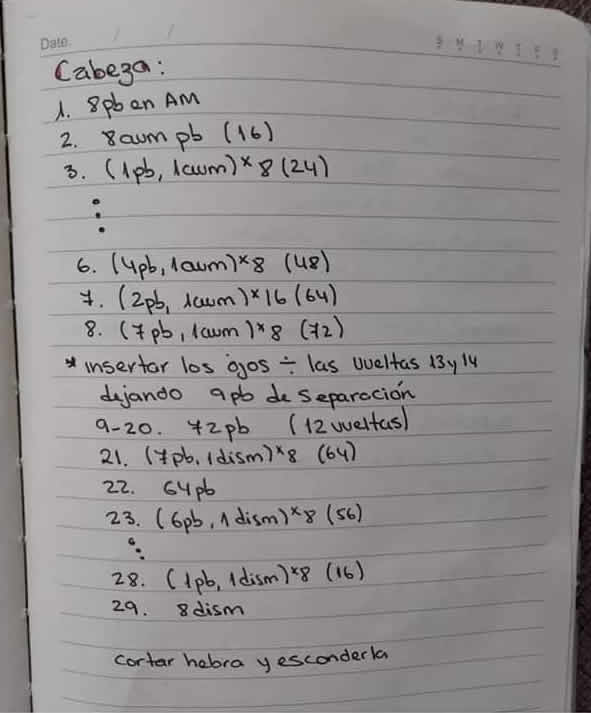 Date. / /
S M T W T F S
Cabeza:
1. 8pb en AM
2. 8aum pb (16)
3. (1pb, 1aum)*8 (24)
⋮
6. (4pb, 1aum)*8 (48)
7. (2pb, 1aum)*16 (64)
8. (7pb, 1aum)*8 (72)
* insertar los ojos ÷ las vueltas 13 y 14
dejando 9pb de separación
9-20. 72pb (12 vueltas)
21. (7pb, 1dism)*8 (64)
22. 64pb
23. (6pb, 1dism)*8 (56)
⋮
28. (1pb, 1dism)*8 (16)
29. 8dism
cortar hebra y esconderla